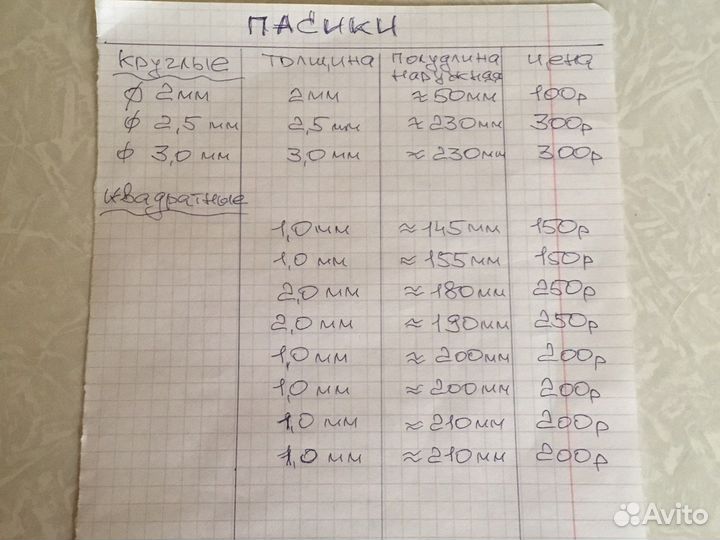 ПАСИКИ
Круглые толщина полудлина наружная цена
ϕ 2мм 2мм ≈50мм 100р
ϕ 2,5 мм 2,5 мм ≈230мм 300р
ϕ 3,0 мм 3,0 мм ≈230мм 300р
Квадратные
1,0мм ≈145мм 150р
1,0мм ≈155мм 150р
2,0мм ≈180мм 250р
2,0мм ≈190мм 250р
1,0мм ≈200мм 200р
1,0мм ≈200мм 200р
1,0 мм ≈210мм 200р
1,0 мм ≈210мм 200р
Avito